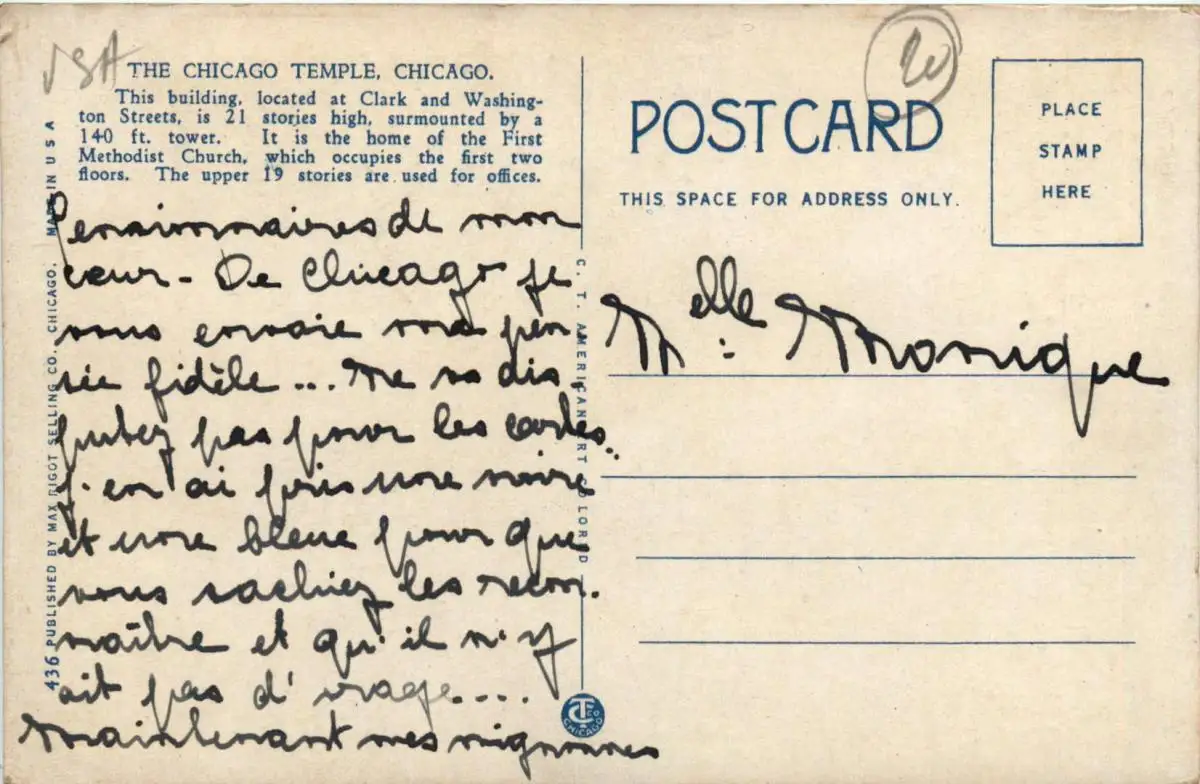 USA
THE CHICAGO TEMPLE, CHICAGO.
This building, located at Clark and Washing-
ton Streets, is 21 stories high, surmounted by a
140 ft. tower. It is the home of the First
Methodist Church, which occupies the first two
floors. The upper 19 stories are used for offices.
Pensionnaires de mon
cœur - De Chicago je
vous envoie ma pen
sée fidèle ... Ne vs dis-
putez pas pour les cartes..
J'en ai pris une noire
et une bleue pour que
vous sachiez les recon-
naître et qu'il n'y
ait pas d'orage....
Maintenant mes mignonnes
436 PUBLISHED BY MAX RIGOT SELLING CO. CHICAGO. MADE IN U S A
C. T. AMERICAN ART COLORED
CT CO
CHICAGO
20
POSTCARD
THIS SPACE FOR ADDRESS ONLY.
PLACE
STAMP
HERE
Melle: Monique